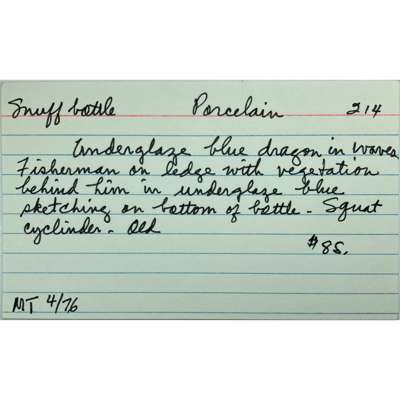 Snuff bottle Porcelain 214
Underglaze blue dragon in waves
Fisherman on ledge with vegetation
behind him in underglaze blue
sketching on bottom of bottle - Squat
cyclinder - Old
$85.
MT 4/76